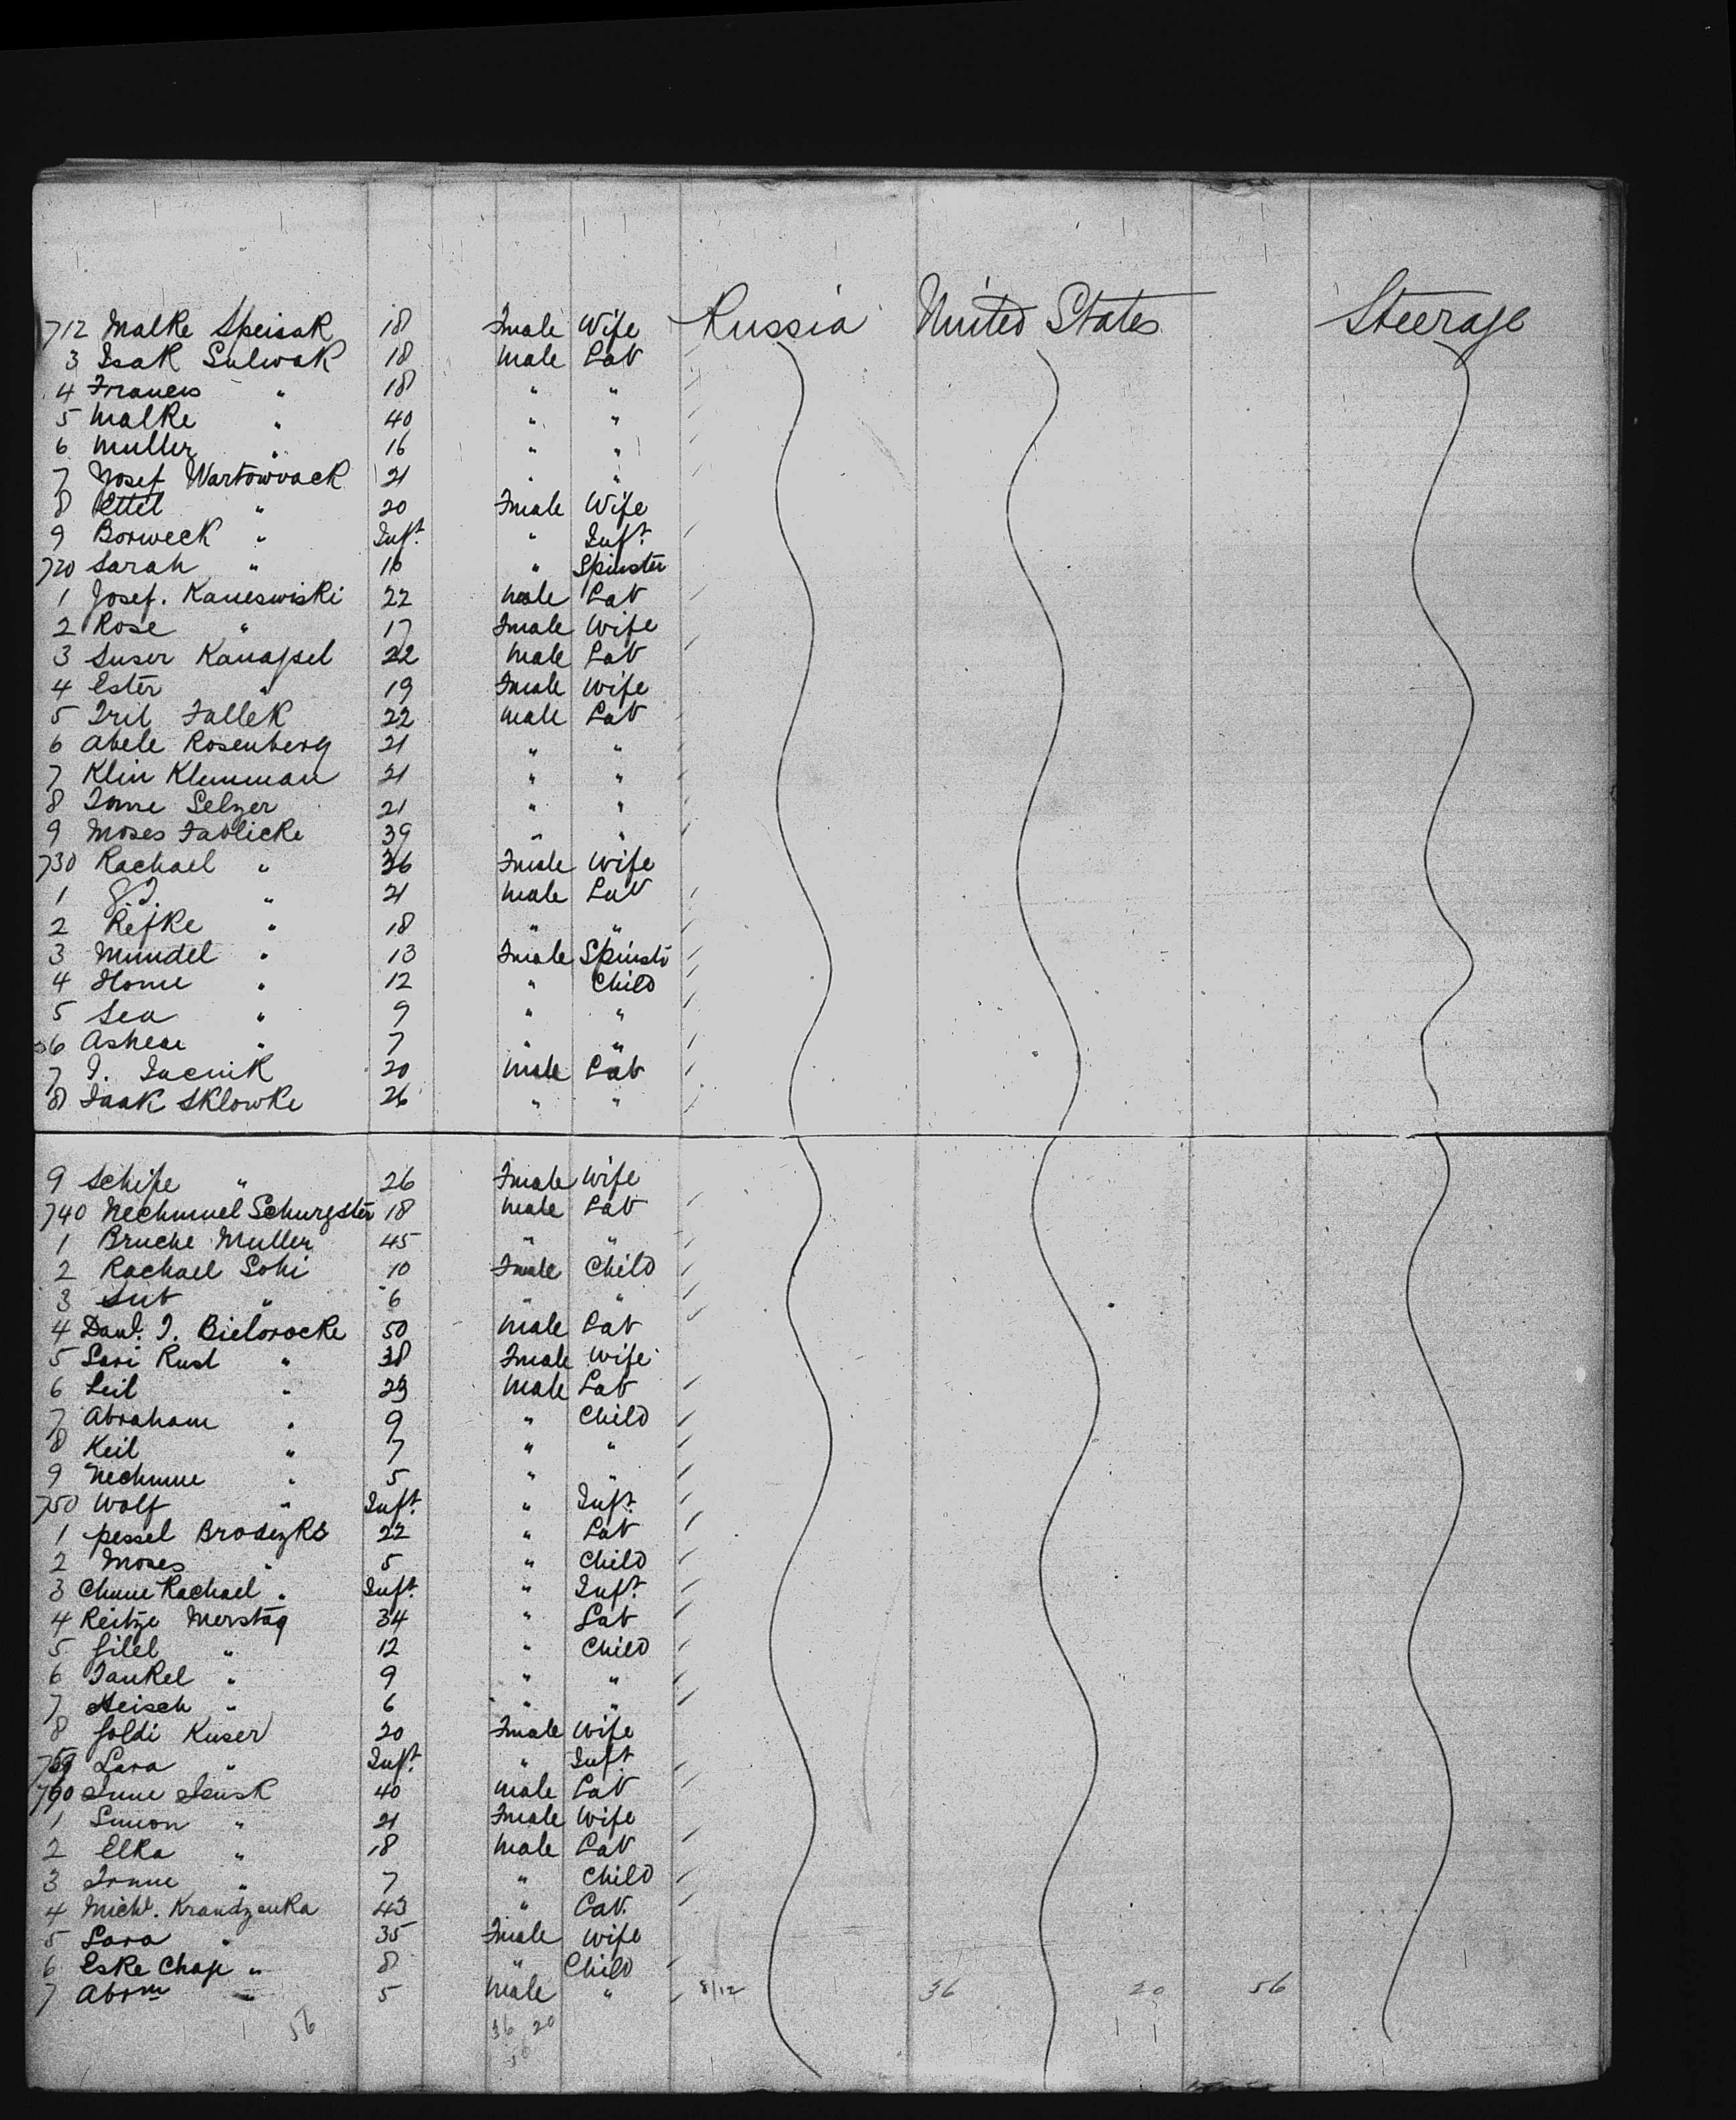 712 Malke Speisak 18 Fmale Wife Russia United States Steerage
3 Isak Sulwak 18 Male Lab
4 Francis " 18 " "
5 Malke " 40 " "
6 Muller " 16 " "
7 Josef Wartowvack 21 " "
8 Ettel " 20 Fmale Wife
9 Borweck " Inft. " Inft.
720 Sarah " 16 " Spinster
1 Josef. Kaneswiski 22 Male Lab
2 Rose " 17 Fmale Wife
3 Suser Kanapel 22 Male Lab
4 Ester " 19 Fmale Wife
5 Fallek 22 Male Lab
6 Abele Rosenberg 21 " "
7 Klin Klemman 21 " "
8 Selzer 21 " "
9 Moses Fablicke 39 " "
730 Rachael " 36 Fmale Wife
1 " 21 Male Lab
2 Rifke " 18 " "
3 Mundel " 13 Fmale Spinstr
4 Home " 12 " Child
5 Sea " 9 " "
6 " 7 " "
7 I. 20 Male Lab
8 Isak Sklowke 26 " "
9 Schife " 26 Fmale Wife
740 Nechmuel Schurgster 18 Male Lab
1 Bruche Muller 45 " "
2 Rachael Sohi 10 Fmale Child
3 " 6 " "
4 Danl. I. Bielorocke 50 Male Lab
5 Sari Rusl " 38 Fmale Wife
6 Leil " 23 Male Lab
7 Abraham " 9 " Child
8 Keil " 7 " "
9 Nechmue " 5 " "
750 Wolf " Inft. " Inft.
1 Pessel Brodezks 22 " Lab
2 Moses " 5 " Child
3 Chune Rachael " Inft. " Inft.
4 Reitze Merstag 34 " Lab
5 Gilel " 12 " Child
6 Jankel " 9 " "
7 Heisch " 6 " "
8 Goldi Kuser 20 Fmale Wife
759 Sara " Inft. " Inft
760 40 Male Lab
1 Simon " 21 Fmale Wife
2 Elka " 18 Male Lab
3 " 7 " Child
4 Michl. Krandzenka 43 " Lab.
5 Sara " 35 Fmale Wife
6 Eske Chaje " 8 " Child
7 Abrm " 5 Male " 8/12 36 20 56
56 36 20